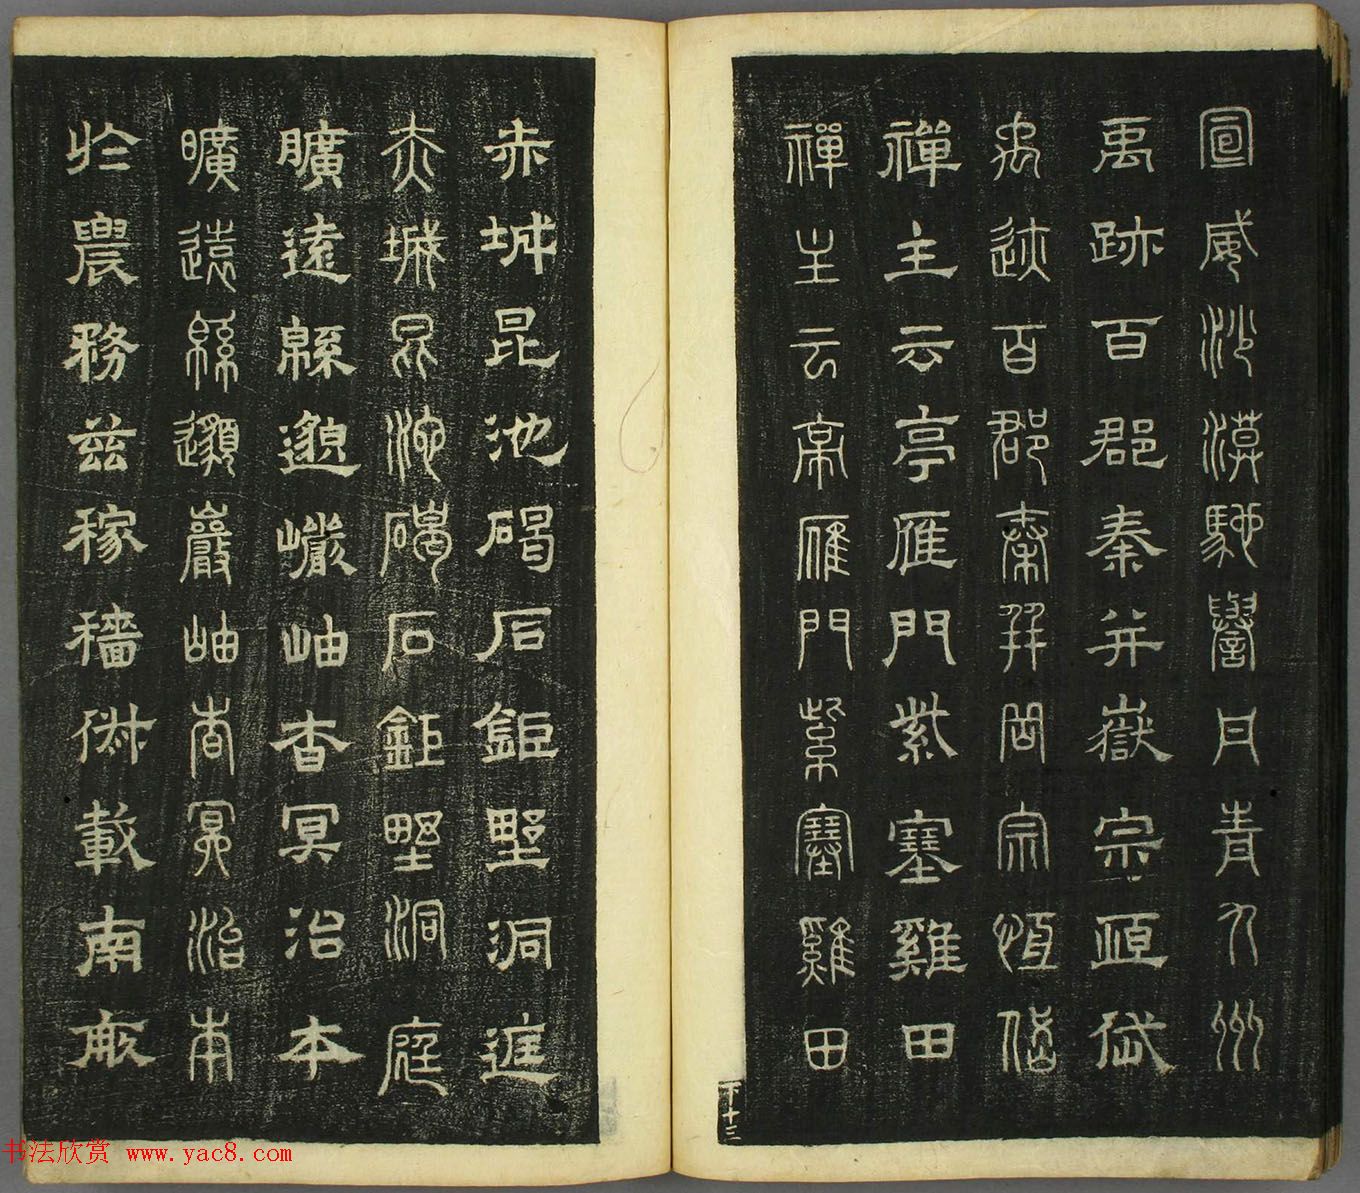 宣威沙漠馳譽丹青九州
禹跡百郡秦并嶽宗恒岱
禹迹百郡秦并岳宗恒岱
禪主云亭雁門紫塞雞田
禪主云亭雁門紫塞雞田
赤城昆池碣石鉅野洞庭
赤城昆池碣石鉅野洞庭
曠遠緜邈巖岫杳冥治本
曠遠緜邈巖岫杳冥治本
於農務茲稼穡俶載南畝
下十三
书法欣赏 www.yac8.com